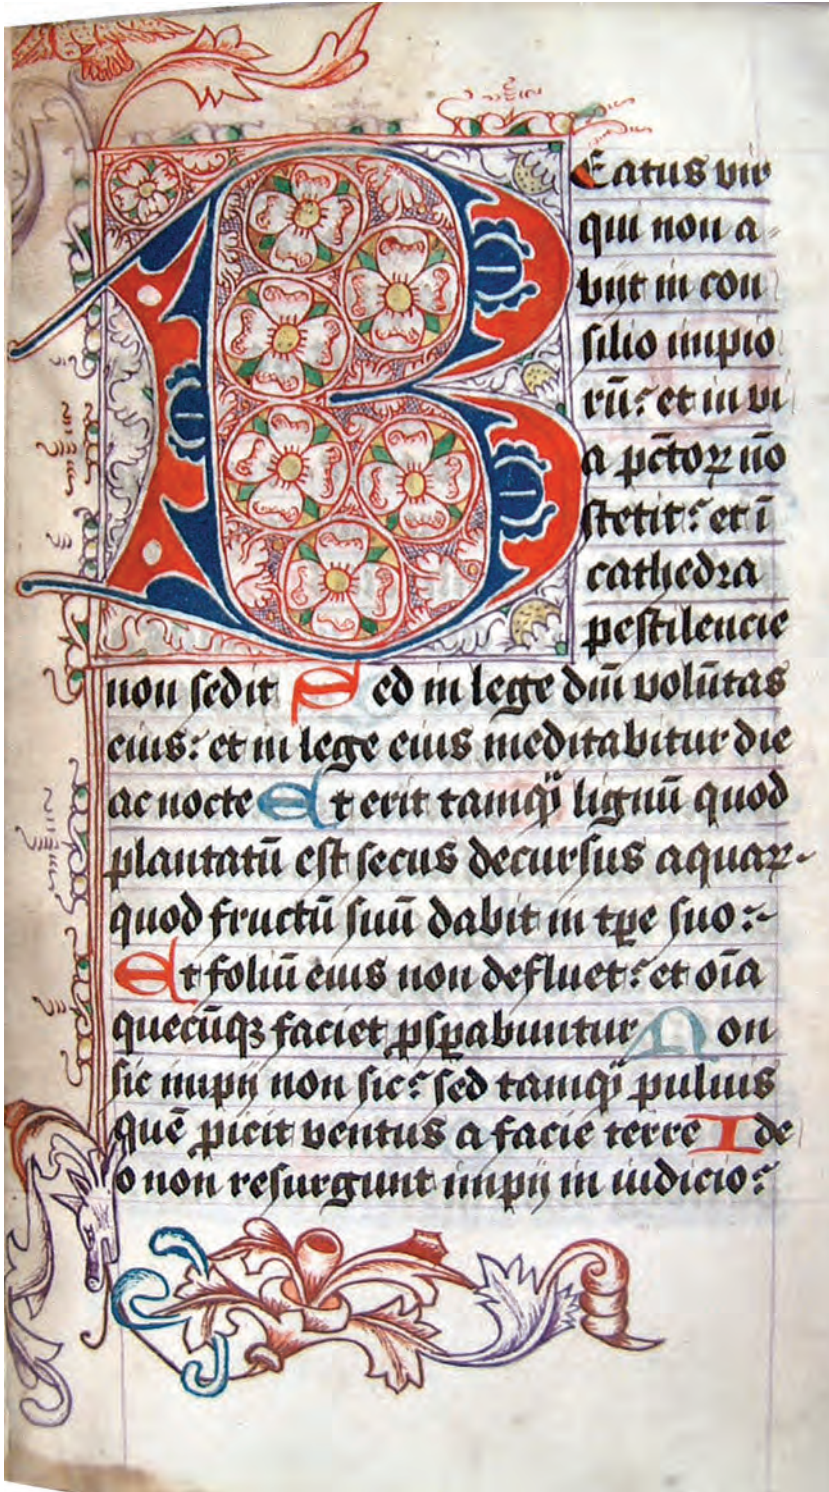 Beatus vir
qui non a-
biit in con
silio impio
rū: et in vi
a pcc̄toꝝ nō
stetit: et ī
cathedra
pestilencie
non sedit Sed in lege dn̄i volūtas
eius: et in lege eius meditabitur die
ac nocte Et erit tamqͣ lignū quod
plantatū est secus decursus aquaꝝ-
quod fructū suū dabit in tp̄e suo:-
Et foliū eius non defluet: et oīa
quecūqꝫ faciet ꝓsꝑabuntur Non
sic impij non sic: sed tamqͣ puluis
quē ꝓicit ventus a facie terre Ide
o non resurgunt impij in iudicio: